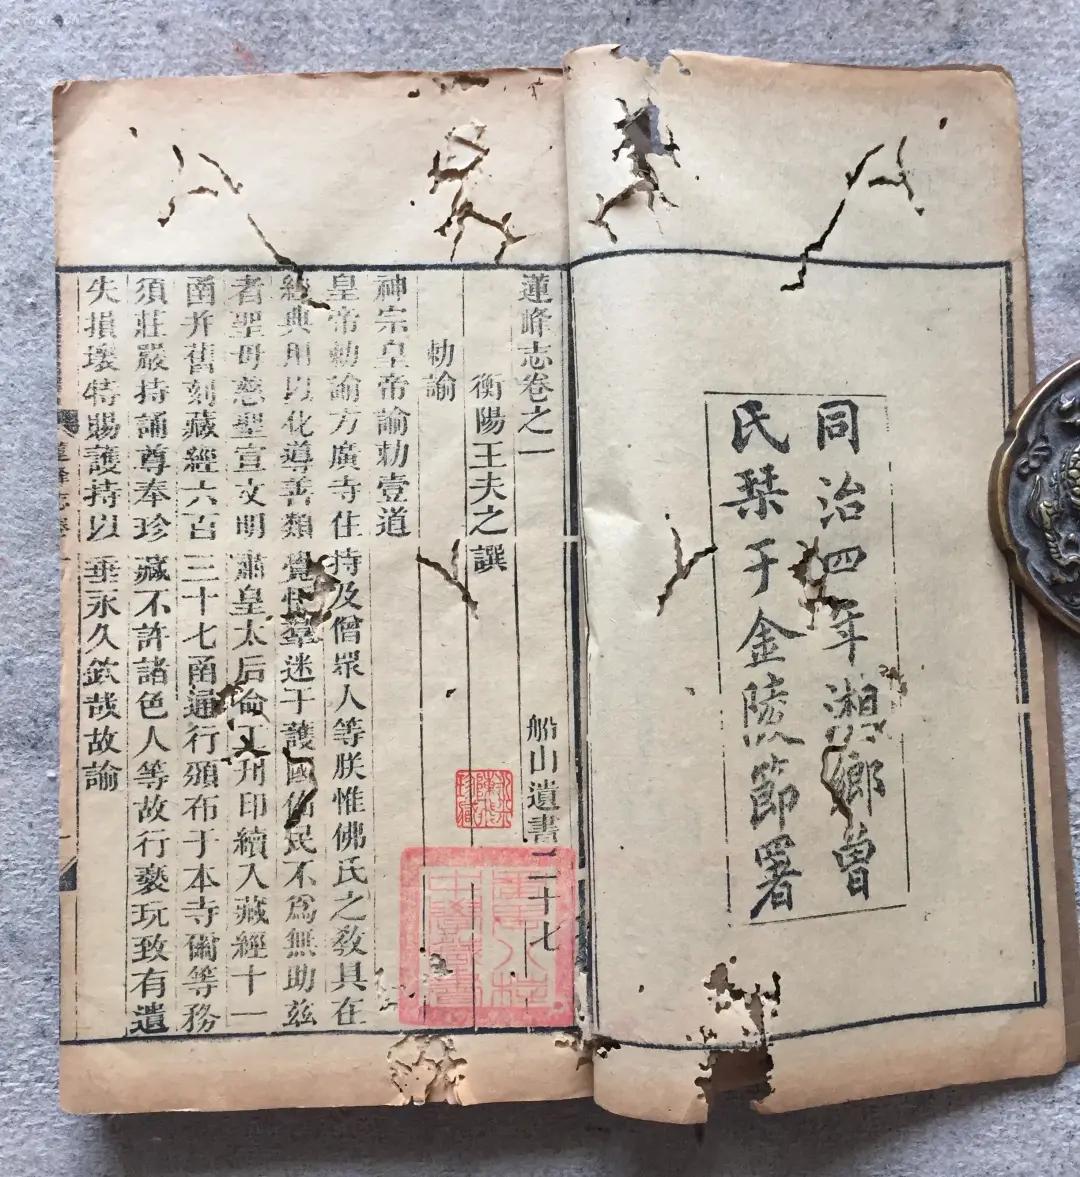 同治四年湘鄉曾
氏栞于金陵節署
蓮峰志卷之一
船山遺書二十七
衡陽王夫之譔
勅諭
神宗皇帝諭勅壹道
皇帝勅諭方廣寺住持及僧眾人等朕惟佛氏之敎具在
經典用以化導善類覺悟羣迷于護國佑民不爲無助茲
者聖母慈聖宣文明肅皇太后命工刋印續入藏經十一
函并舊刻藏經六百三十七函通行頒布于本寺爾等務
須莊嚴持誦尊奉珍藏不許諸色人等故行褻玩致有遺
失損壞特賜護持以垂永久欽哉故諭